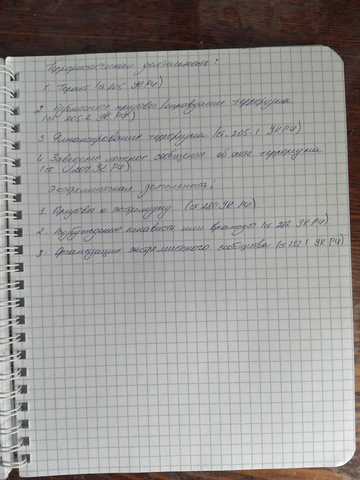 Террористическая деятельность:
1. Теракт (ст 205 УК РФ)
2. Публичные призывы/оправдание терроризма
(ст 205.2 УК РФ)
3. Финансирование терроризма (ст. 205.1 УК РФ)
4. Заведомо ложное сообщение об акте терроризма
(ст 207 УК РФ)
Экстремистская деятельность:
1. Призывы к экстремизму (ст 280 УК РФ)
2. Возбуждение ненависти или вражды (ст 282 УК РФ)
3. Организация экстремистского сообщества (ст 282.1 УК РФ)